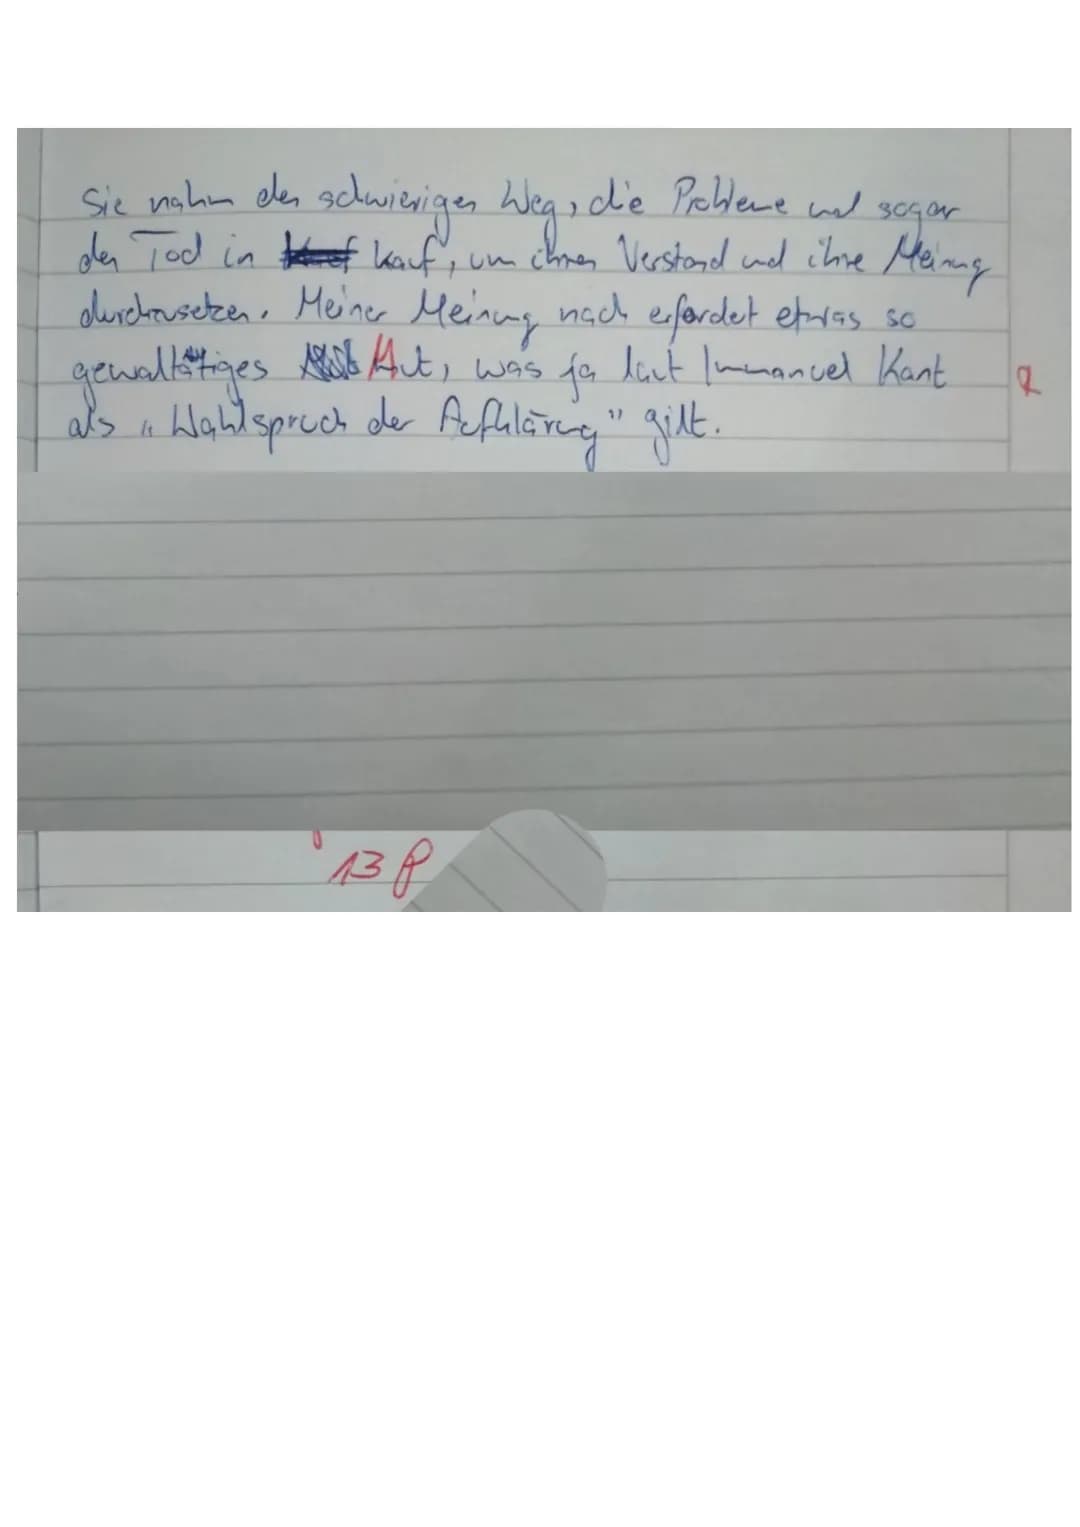 Sie nahm den schwierigen Weg, die Probleme und sogar
den Tod in kauf, um ihren Verstand und ihre Meinung
durchzusetzen. Meiner Meinung nach erfordet etwas so
gewalttätiges Mut, was ja laut Immanuel Kant
als „Wahlspruch der Aufklärung" gilt.
R
13 P